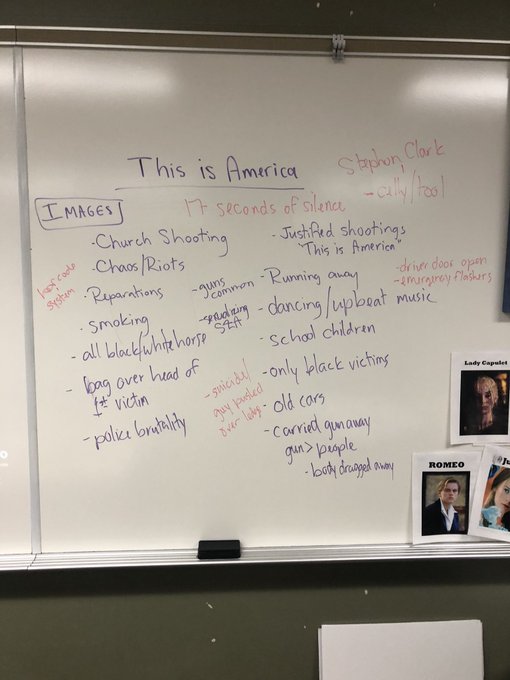 This is America
Stephon Clark
- celly/tool
IMAGES
17 seconds of silence
- Church Shooting
- Chaos/Riots
- Reparations
- smoking
- all black/white horse
- bag over head of
1st victim
- police brutality
system
- guns
common
- suicidal/
guy pushed
over ledge
- Justified shootings
"This is America"
- Running away
- dancing/upbeat music
- school children
- only black victims
- old cars
- carried gun away
gun > people
- body dragged away
- driver door open
- emergency flashers
Lady Capulet
ROMEO